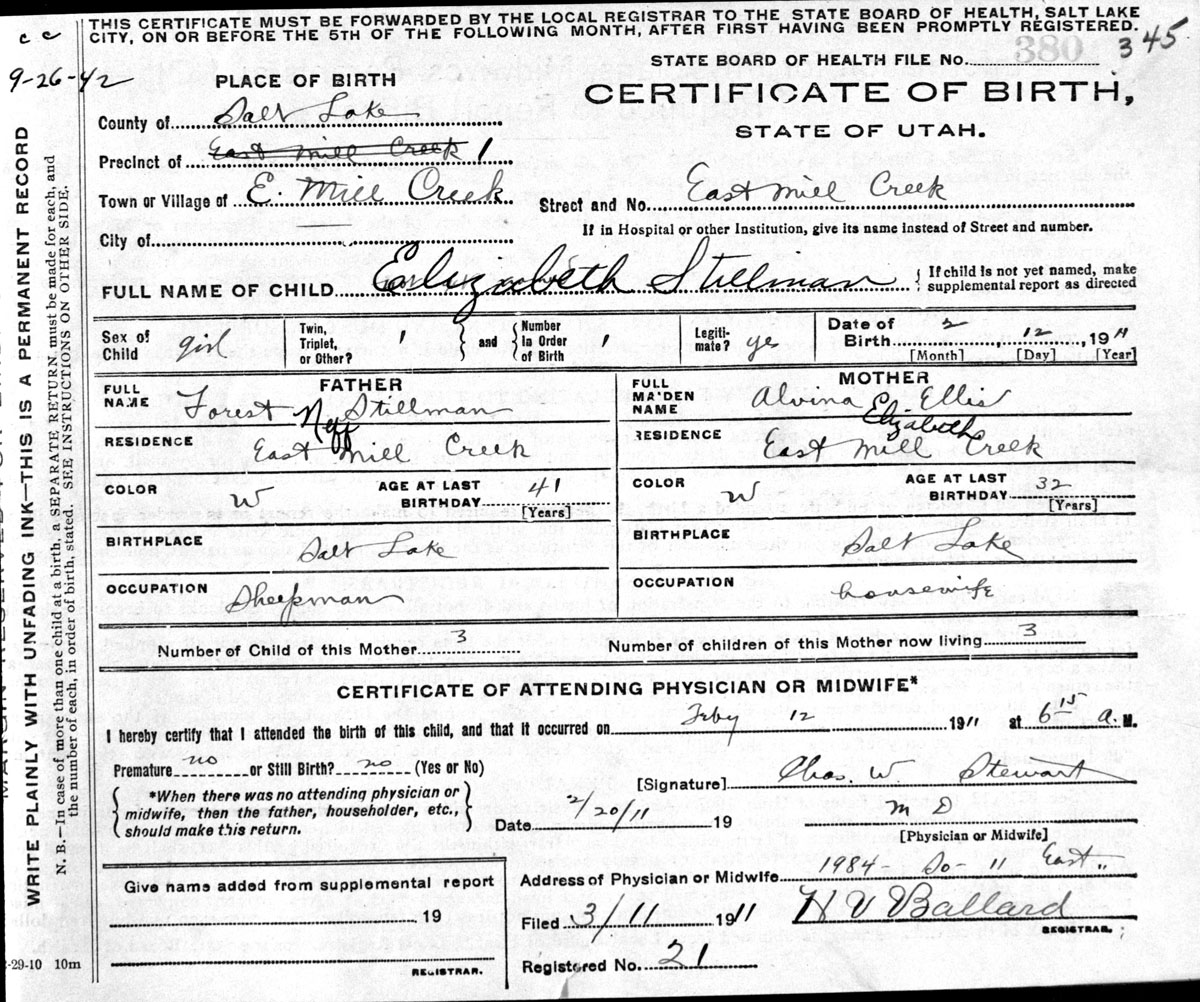 THIS CERTIFICATE MUST BE FORWARDED BY THE LOCAL REGISTRAR TO THE STATE BOARD OF HEALTH, SALT LAKE
CITY, ON OR BEFORE THE 5TH OF THE FOLLOWING MONTH, AFTER FIRST HAVING BEEN PROMPTLY REGISTERED.
c c
9-26-42
345
380
STATE BOARD OF HEALTH FILE No.
PLACE OF BIRTH
CERTIFICATE OF BIRTH,
STATE OF UTAH.
County of Salt Lake
Precinct of East Mill Creek 1
Town or Village of E. Mill Creek
Street and No. East Mill Creek
City of
If in Hospital or other Institution, give its name instead of Street and number.
FULL NAME OF CHILD Elizabeth Stillman { If child is not yet named, make
supplemental report as directed
Sex of Child girl
Twin, Triplet, or Other? 1 } and { Number in Order of Birth 1
Legiti-mate? yes
Date of Birth 2 12, 1911
[Month] [Day] [Year]
FATHER
FULL NAME Forest Neff Stillman
RESIDENCE East Mill Creek
COLOR W AGE AT LAST BIRTHDAY 41
[Years]
BIRTHPLACE Salt Lake
OCCUPATION Sheepman
MOTHER
FULL MAIDEN NAME Alvina Elizabeth Ellis
RESIDENCE East Mill Creek
COLOR W AGE AT LAST BIRTHDAY 32
[Years]
BIRTHPLACE Salt Lake
OCCUPATION housewife
Number of Child of this Mother 3 Number of children of this Mother now living 3
CERTIFICATE OF ATTENDING PHYSICIAN OR MIDWIFE*
I hereby certify that I attended the birth of this child, and that it occurred on Feby 12 1911 at 6 15 a. M.
Premature no or Still Birth? no (Yes or No)
{ *When there was no attending physician or
midwife, then the father, householder, etc.,
should make this return. }
[Signature] Chas. W. Stewart
Date 2/20/11 19 M D
[Physician or Midwife]
Give name added from supplemental report
19
REGISTRAR.
Address of Physician or Midwife 1984 - So - 11 East "
Filed 3/11 1911 H V Ballard
REGISTRAR.
Registered No. 21
-29-10 10m
WRITE PLAINLY WITH UNFADING INK—THIS IS A PERMANENT RECORD
N. B.—In case of more than one child at a birth, a SEPARATE RETURN must be made for each, and
the number of each, in order of birth, stated. SEE INSTRUCTIONS ON OTHER SIDE.